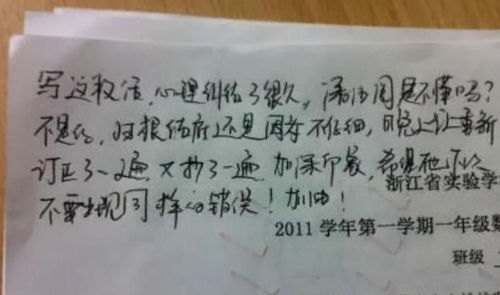 写这段话，心理纠结了很久，潘语周是不懂吗？
不是的，归根结底还是因为不仔细，昨晚上让重新
订正了一遍又抄了一遍加深印象，希望他下次
不要出现同样的错误！加油！
浙江省实验学
2011 学年第一学期一年级数
班级